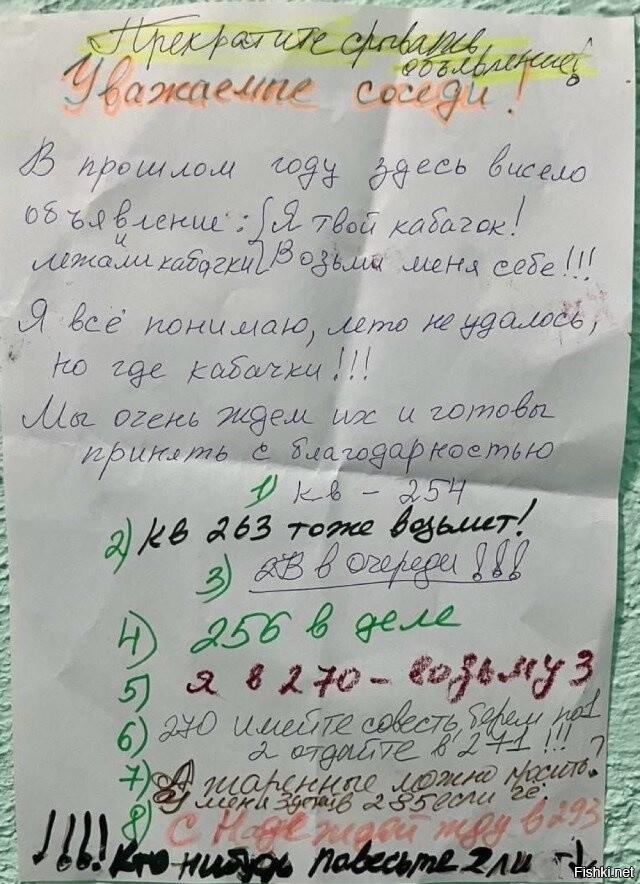 Прекратите срывать
объявление!
Уважаемые соседи!
В прошлом году здесь висело
объявление: Я твой кабачок!
и
лежали кабачки Возьми меня себе!!!
Я всё понимаю, лето не удалось,
но где кабачки!!!
Мы очень ждем их и готовы
принять с благодарностью
1) кв - 254
2) кв 263 тоже возьмет!
3) в очереди!!!
4) 256 в деле
5) я в 270 - возьму 3
6) 270 имейте совесть берем по 1
2 отдайте в 271!!!
7) А жаренные можно носить?
У меня в если чё.
8) С Надеждой жду в 293
!!!! Кто нибудь повесьте 2 ли
Fishki.net